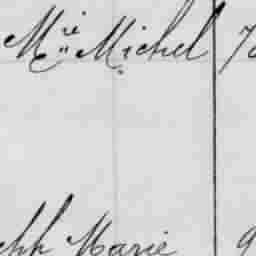 Mie Michel 7
chh Marie 9